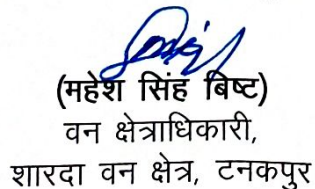 (महेश सिंह बिष्ट)
वन क्षेत्राधिकारी,
शारदा वन क्षेत्र, टनकपुर